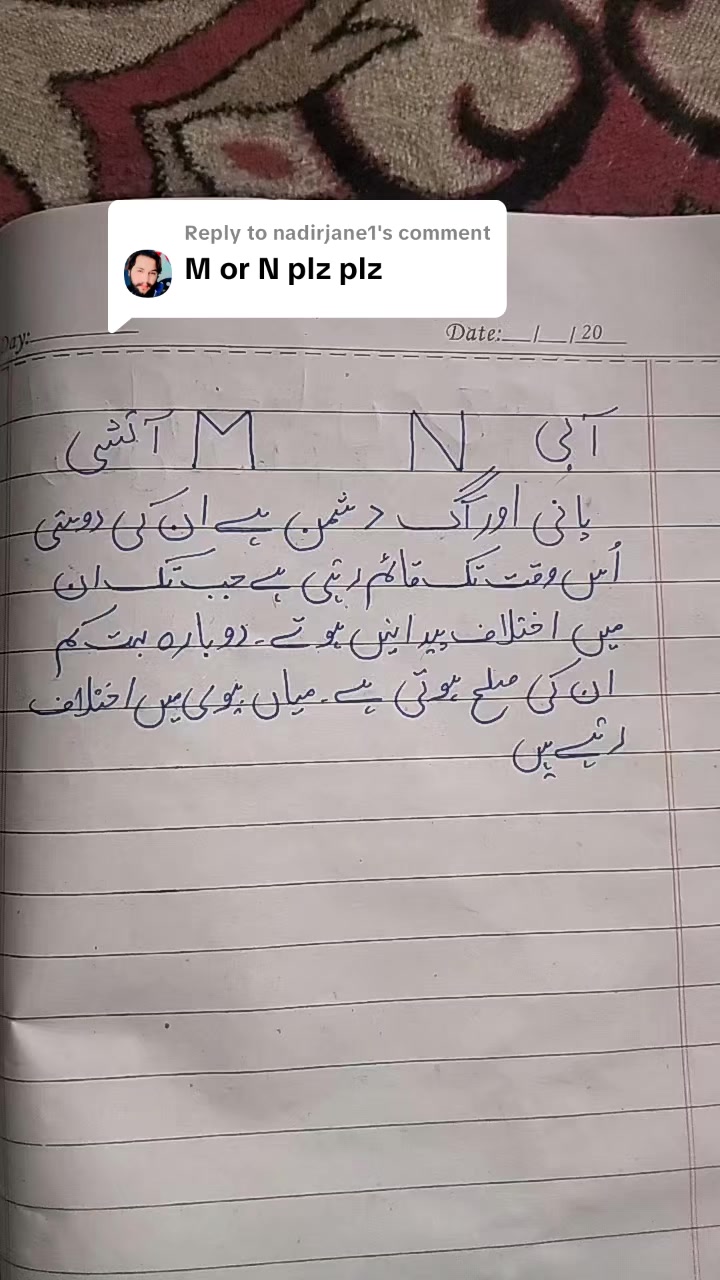 Reply to nadirjane1's comment
M or N plz plz
Day:
Date:__/__/20__
آبی N M آتشی
پانی اور آگ دشمن ہے ان کی دوستی
اُس وقت تک قائم رہتی ہے جب تک ان
میں اختلاف پیدا نہیں ہوتے۔ دوبارہ بہت کم
ان کی صلح ہوتی ہے۔ میاں بیوی میں اختلاف
رہتے ہیں